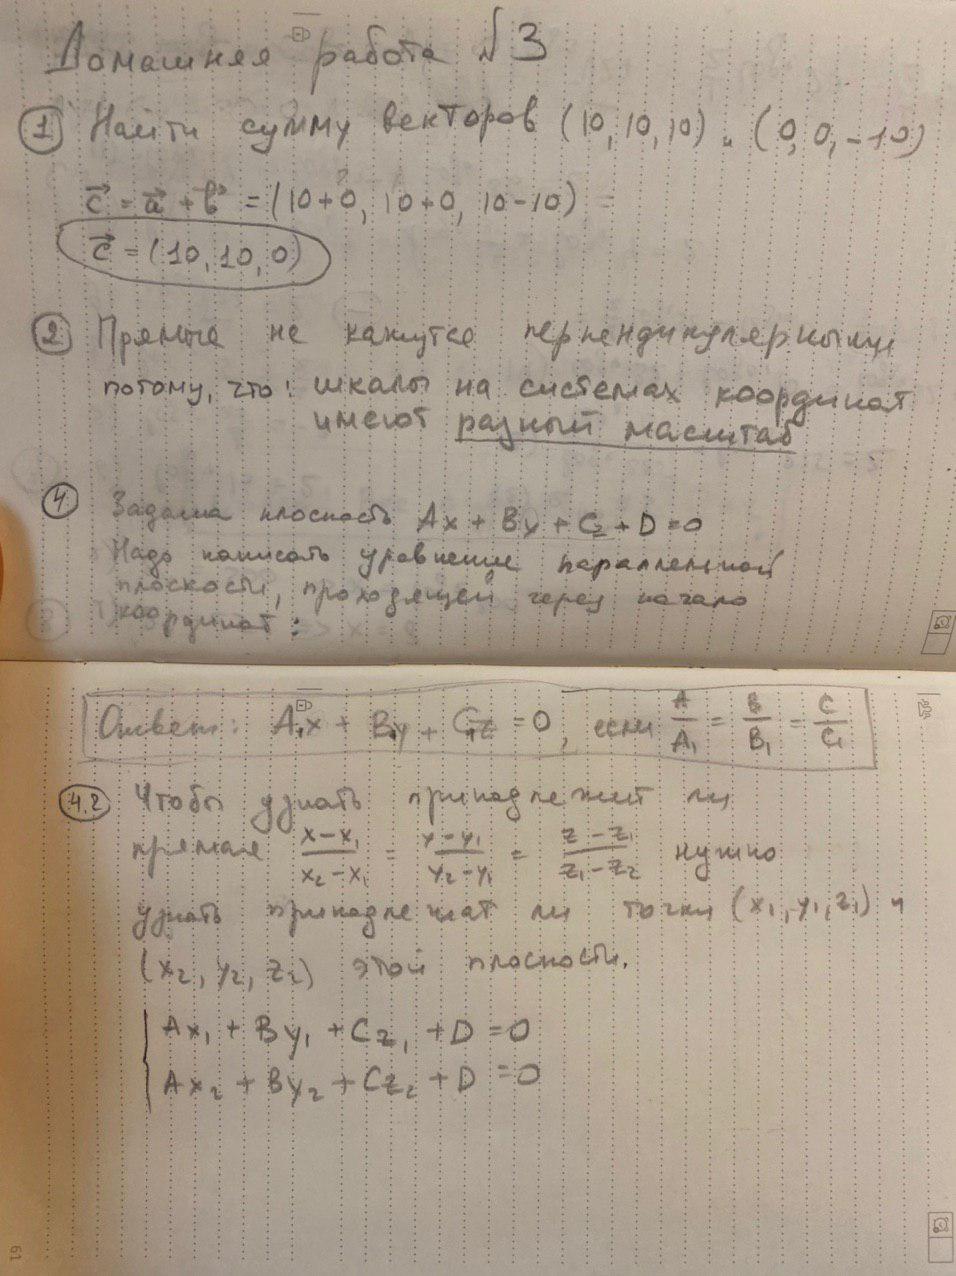 Домашняя работа №3
① Найти сумму векторов (10, 10, 10) и (0, 0, -10)
c⃗ = a⃗ + b⃗ = (10+0, 10+0, 10-10) =
c⃗ = (10, 10, 0)
② Прямые не кажутся перпендикулярными
потому, что: шкалы на системах координат
имеют разный масштаб
④ Задана плоскость Ax + By + Cz + D = 0
Надо написать уравнение параллельной
плоскости, проходящей через начало
координат:
Ответ: A₁x + B₁y + C₁z = 0, если A/A₁ = B/B₁ = C/C₁
4.2 Чтобы узнать принадлежит ли
прямая (x-x₁)/(x₂-x₁) = (y-y₁)/(y₂-y₁) = (z-z₁)/(z₁-z₂) нужно
узнать принадлежат ли точки (x₁, y₁, z₁) и
(x₂, y₂, z₂) этой плоскости.
{ Ax₁ + By₁ + Cz₁ + D = 0
Ax₂ + By₂ + Cz₂ + D = 0
61